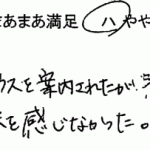 まあまあ満足 ハ やや
ウスを案内されたが、
を感じなかった。